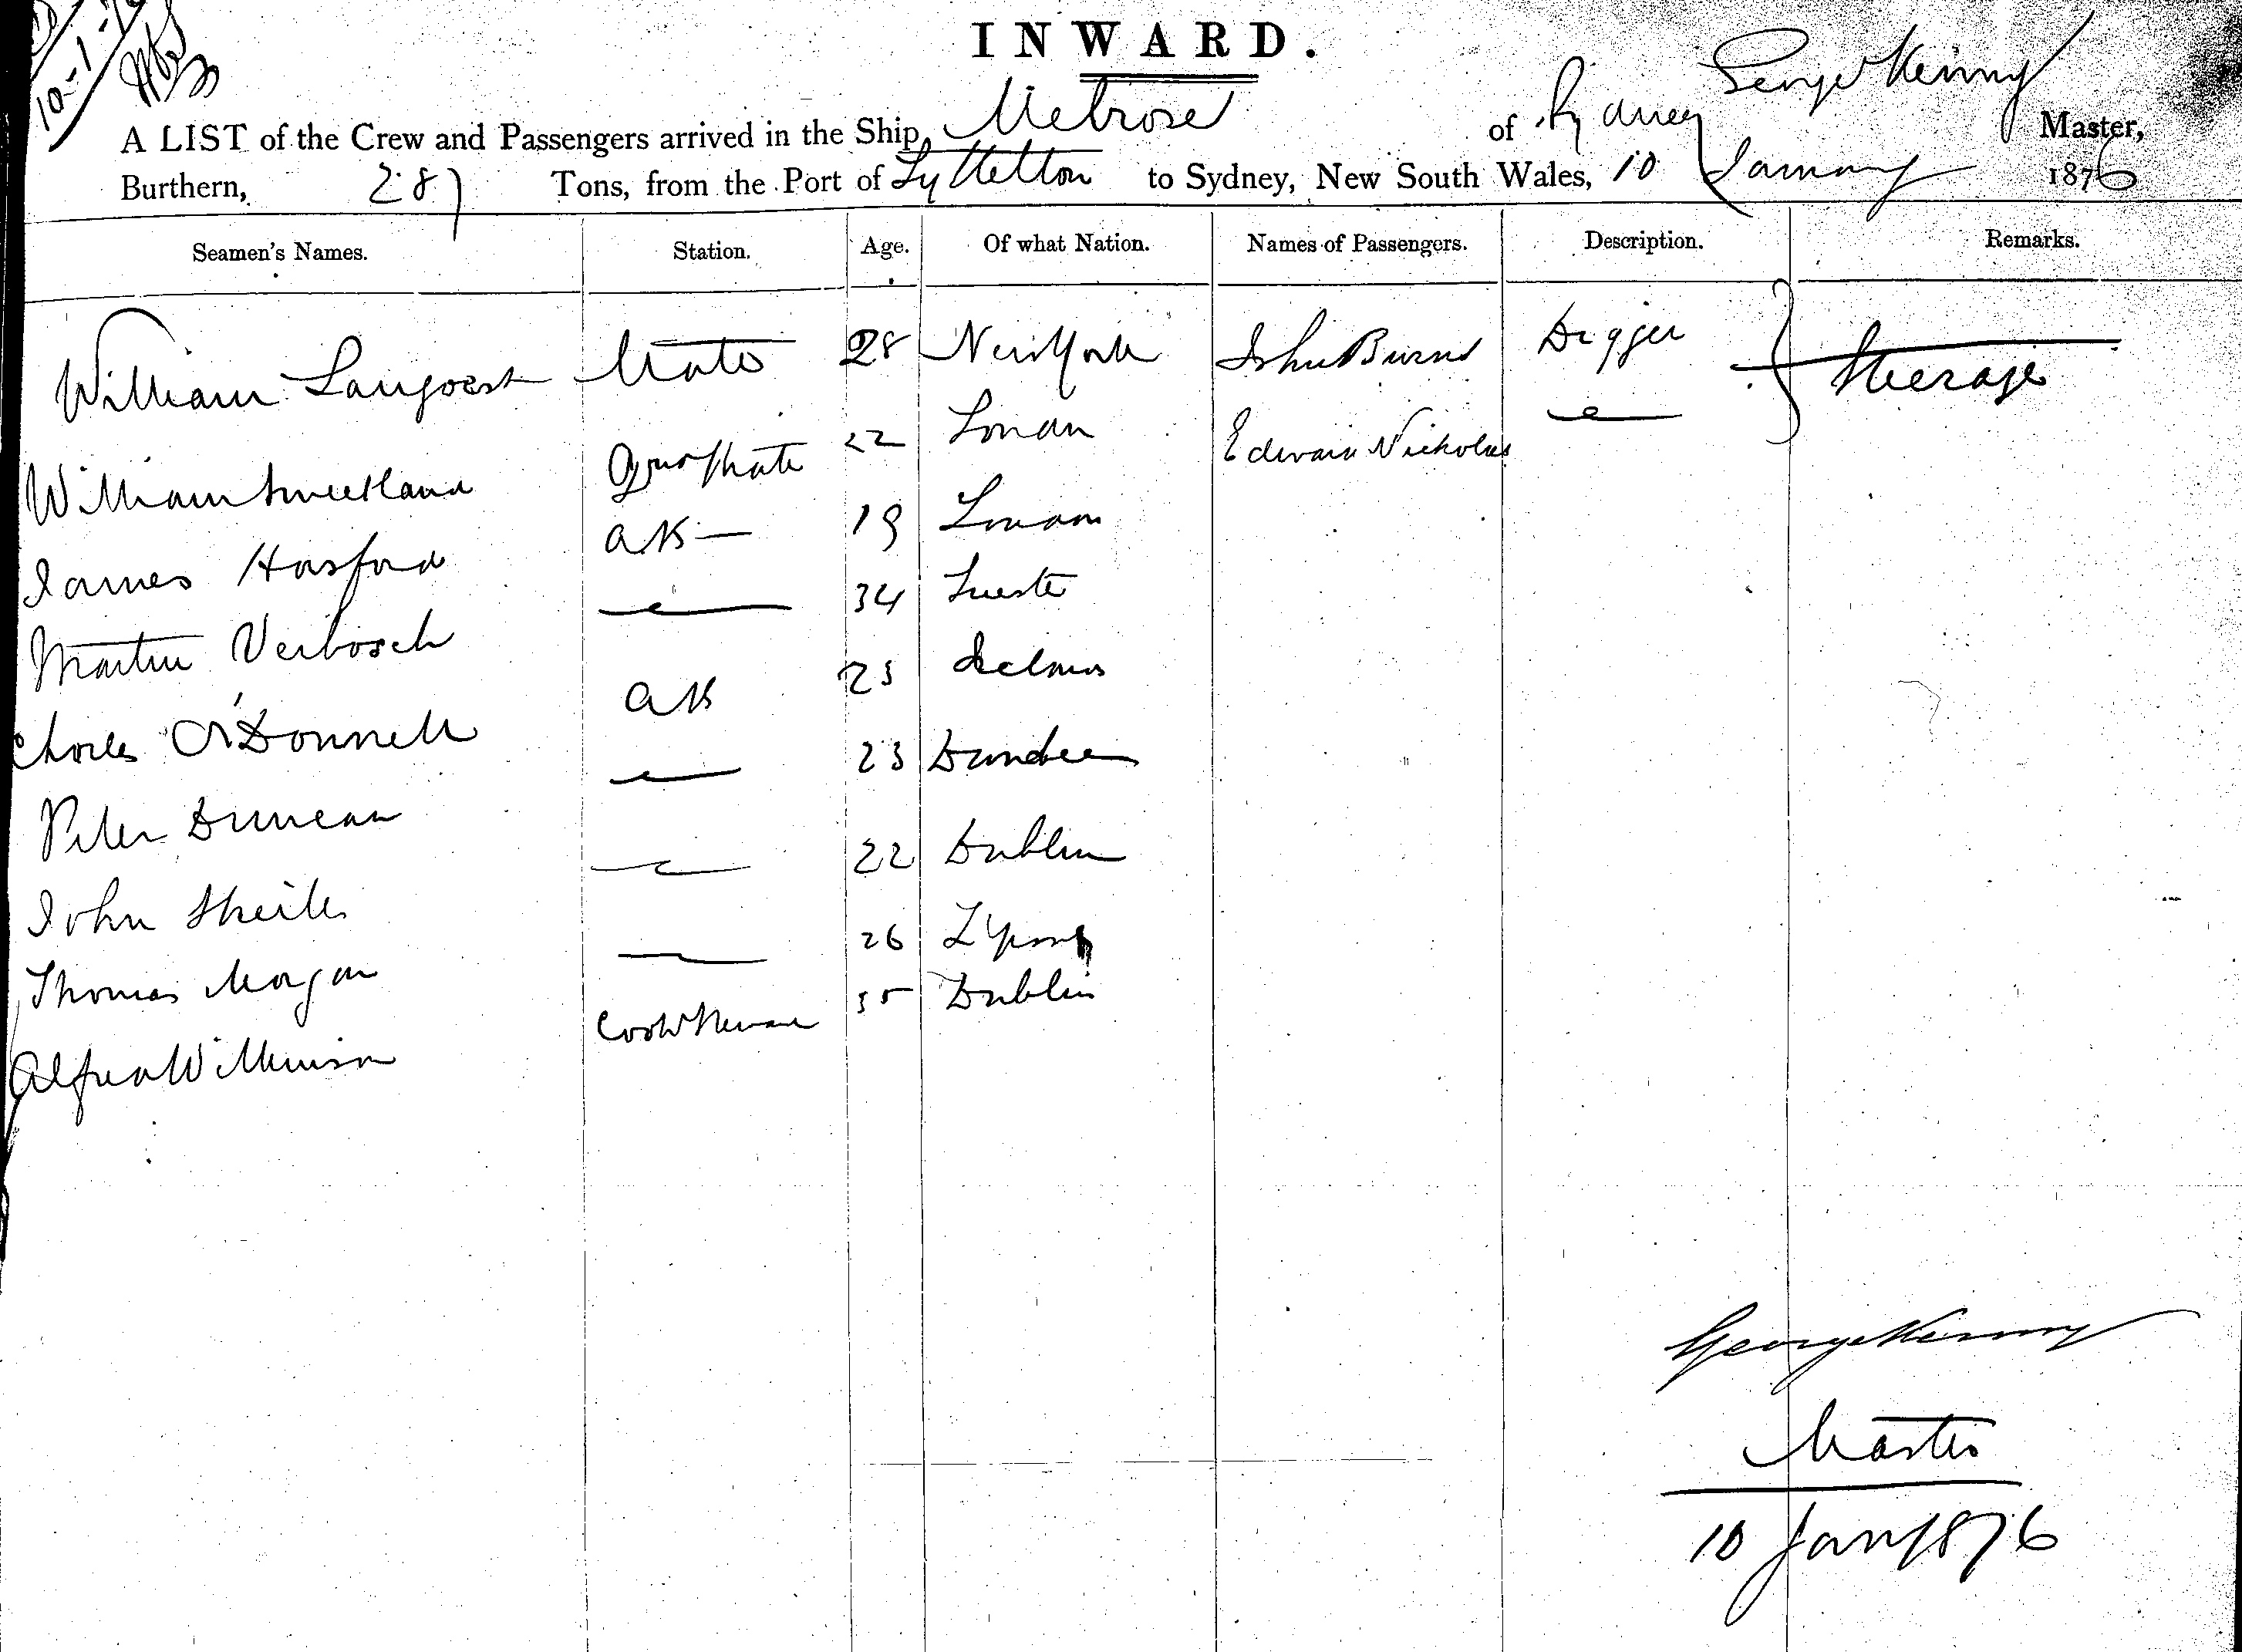 10-1-
INWARD.
George Kenny
A LIST of the Crew and Passengers arrived in the Ship, Melrose of Sydney Master,
Burthern, 287 Tons, from the Port of Lyttelton to Sydney, New South Wales, 10 January 1876
Seamen's Names. Station. Age. Of what Nation. Names of Passengers. Description. Remarks.
William Mate 28 New York John Burns Digger Steerage
William Sweetland 22 London Edward Nicholas
James Hosford AB 19 London
Martin Verbosch 34 Trieste
Charles O'Donnell AB 23
Peter Duncan 23 Dundee
John Sheils 22 Dublin
Thomas Morgan 26 L'pool
Alfred Wilkinson 35 Dublin
George Kenny
Master
10 Jany 1876